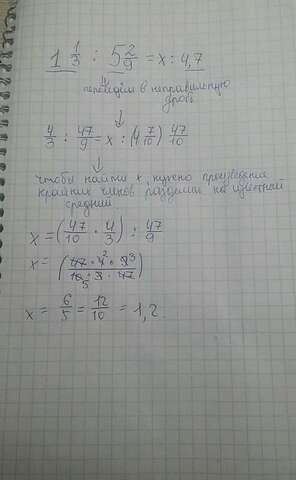 1 1/3 : 5 2/9 = x : 4,7
перейдём в неправильную
дробь
4/3 : 47/9 = x : (4 7/10) 47/10
чтобы найти x, нужно произведение
крайних членов разделить на известный
средний
x = (47/10 · 4/3) : 47/9
x = (47 · 4 2 · 9 3 / 10 5 · 3 · 47)
x = 6/5 = 12/10 = 1,2.